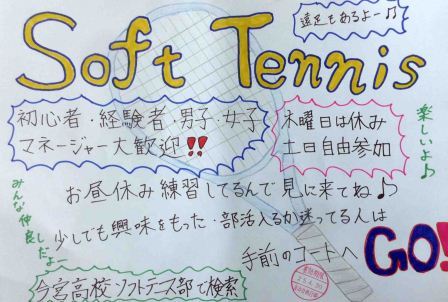 Soft Tennis
遠足もあるよー♪♫
初心者・経験者・男子・女子
マネージャー大歓迎!!
木曜日は休み
土日自由参加
楽しいよ♪
お昼休み練習してるんで見に来てね♪
みんな仲良しだよー
少しでも興味をもった・部活入るか迷ってる人は
手前のコートへGO!!
今宮高校ソフトテニス部で検索